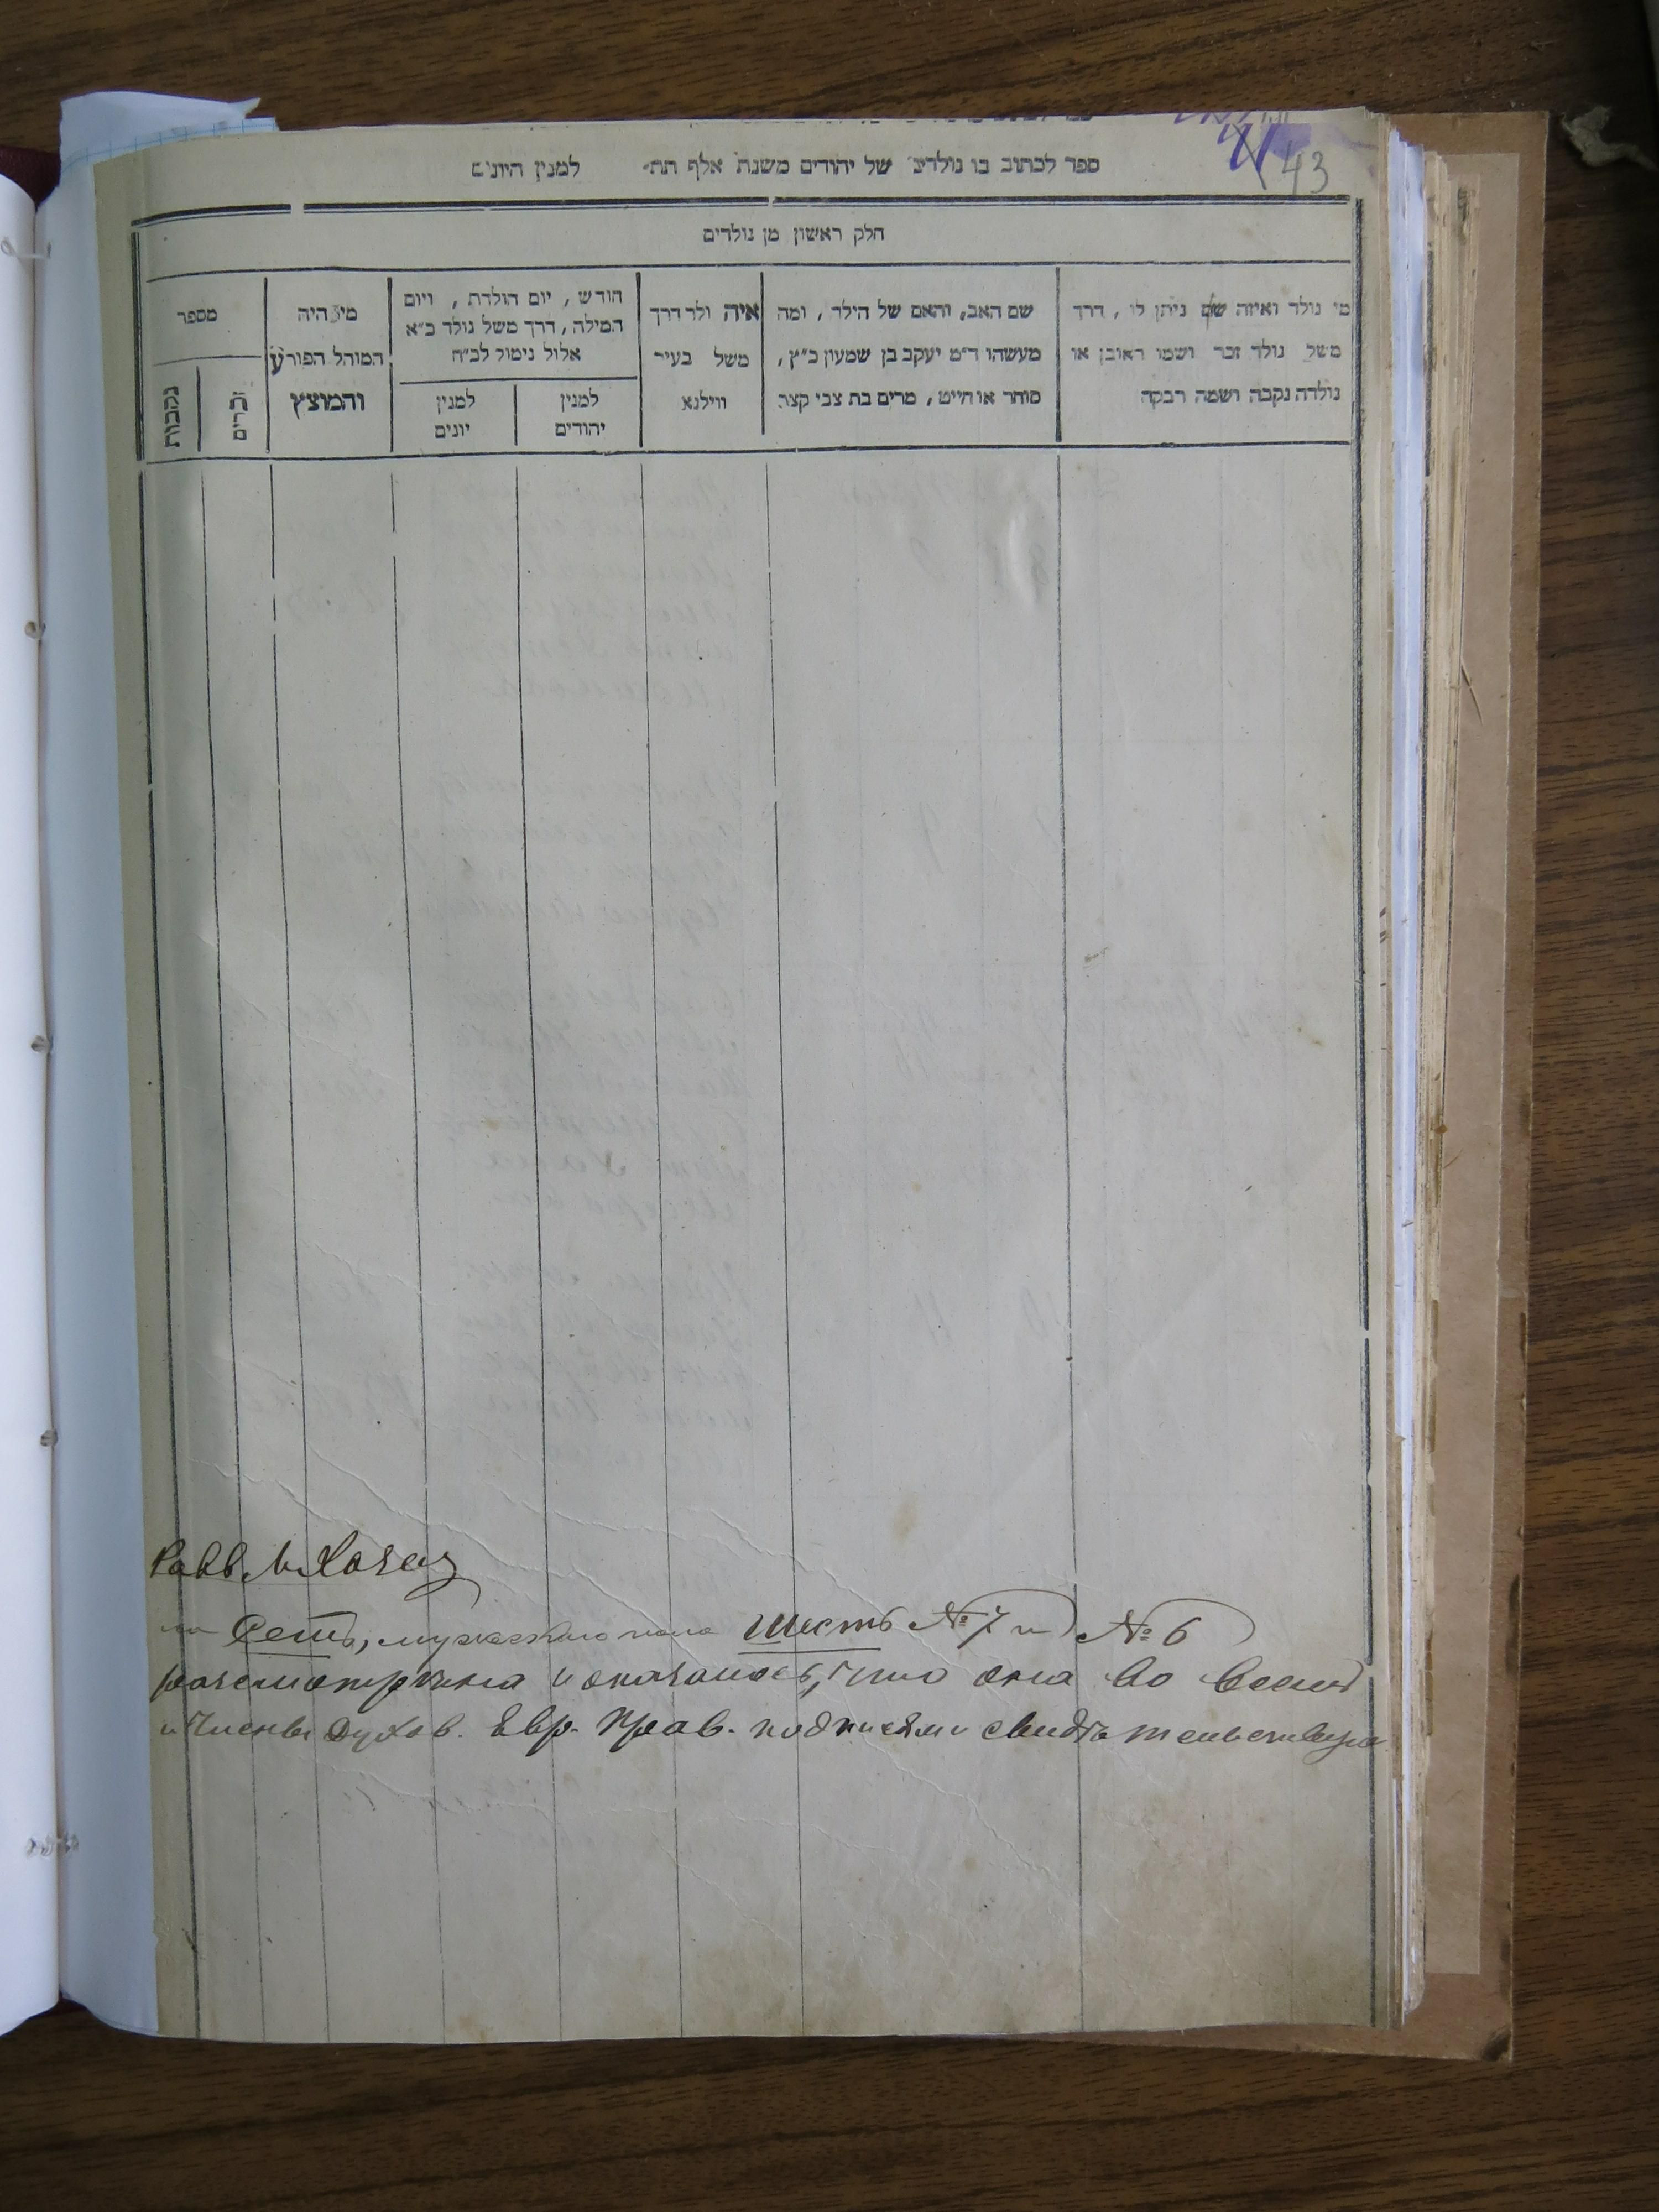 43
ספר לכתוב בו נולדים של יהודים משנת אלף תת׳ למנין היונים
חלק ראשון מן נולדים
מי נולד ואיזה שם ניתן לו, דרך
משל נולד זכר ושמו ראובן או
נולדה נקבה ושמה רבקה
שם האב, והאם של הילד, ומה
מעשהו ד״מ יעקב בן שמעון כ״ץ,
סוחר או חייט, מרים בת צבי קצב
איה ולד דרך
משל בעיר
ווילנא
חודש, יום הולדת, ויום
המילה, דרך משל נולד כ״א
אלול נימול לכ״ח
למנין
יהודים
למנין
יונים
מי היה
המוהל הפורע
והמוצץ
מספר
זכרים
נקבות
Равв. М. Хазан
Семь, мужескаго пола Шесть № 7 и № 6
разсмотрена и оказалось, что она во всемъ
и Члены Духов. Евр. Прав. подписями свидѣтельствуя